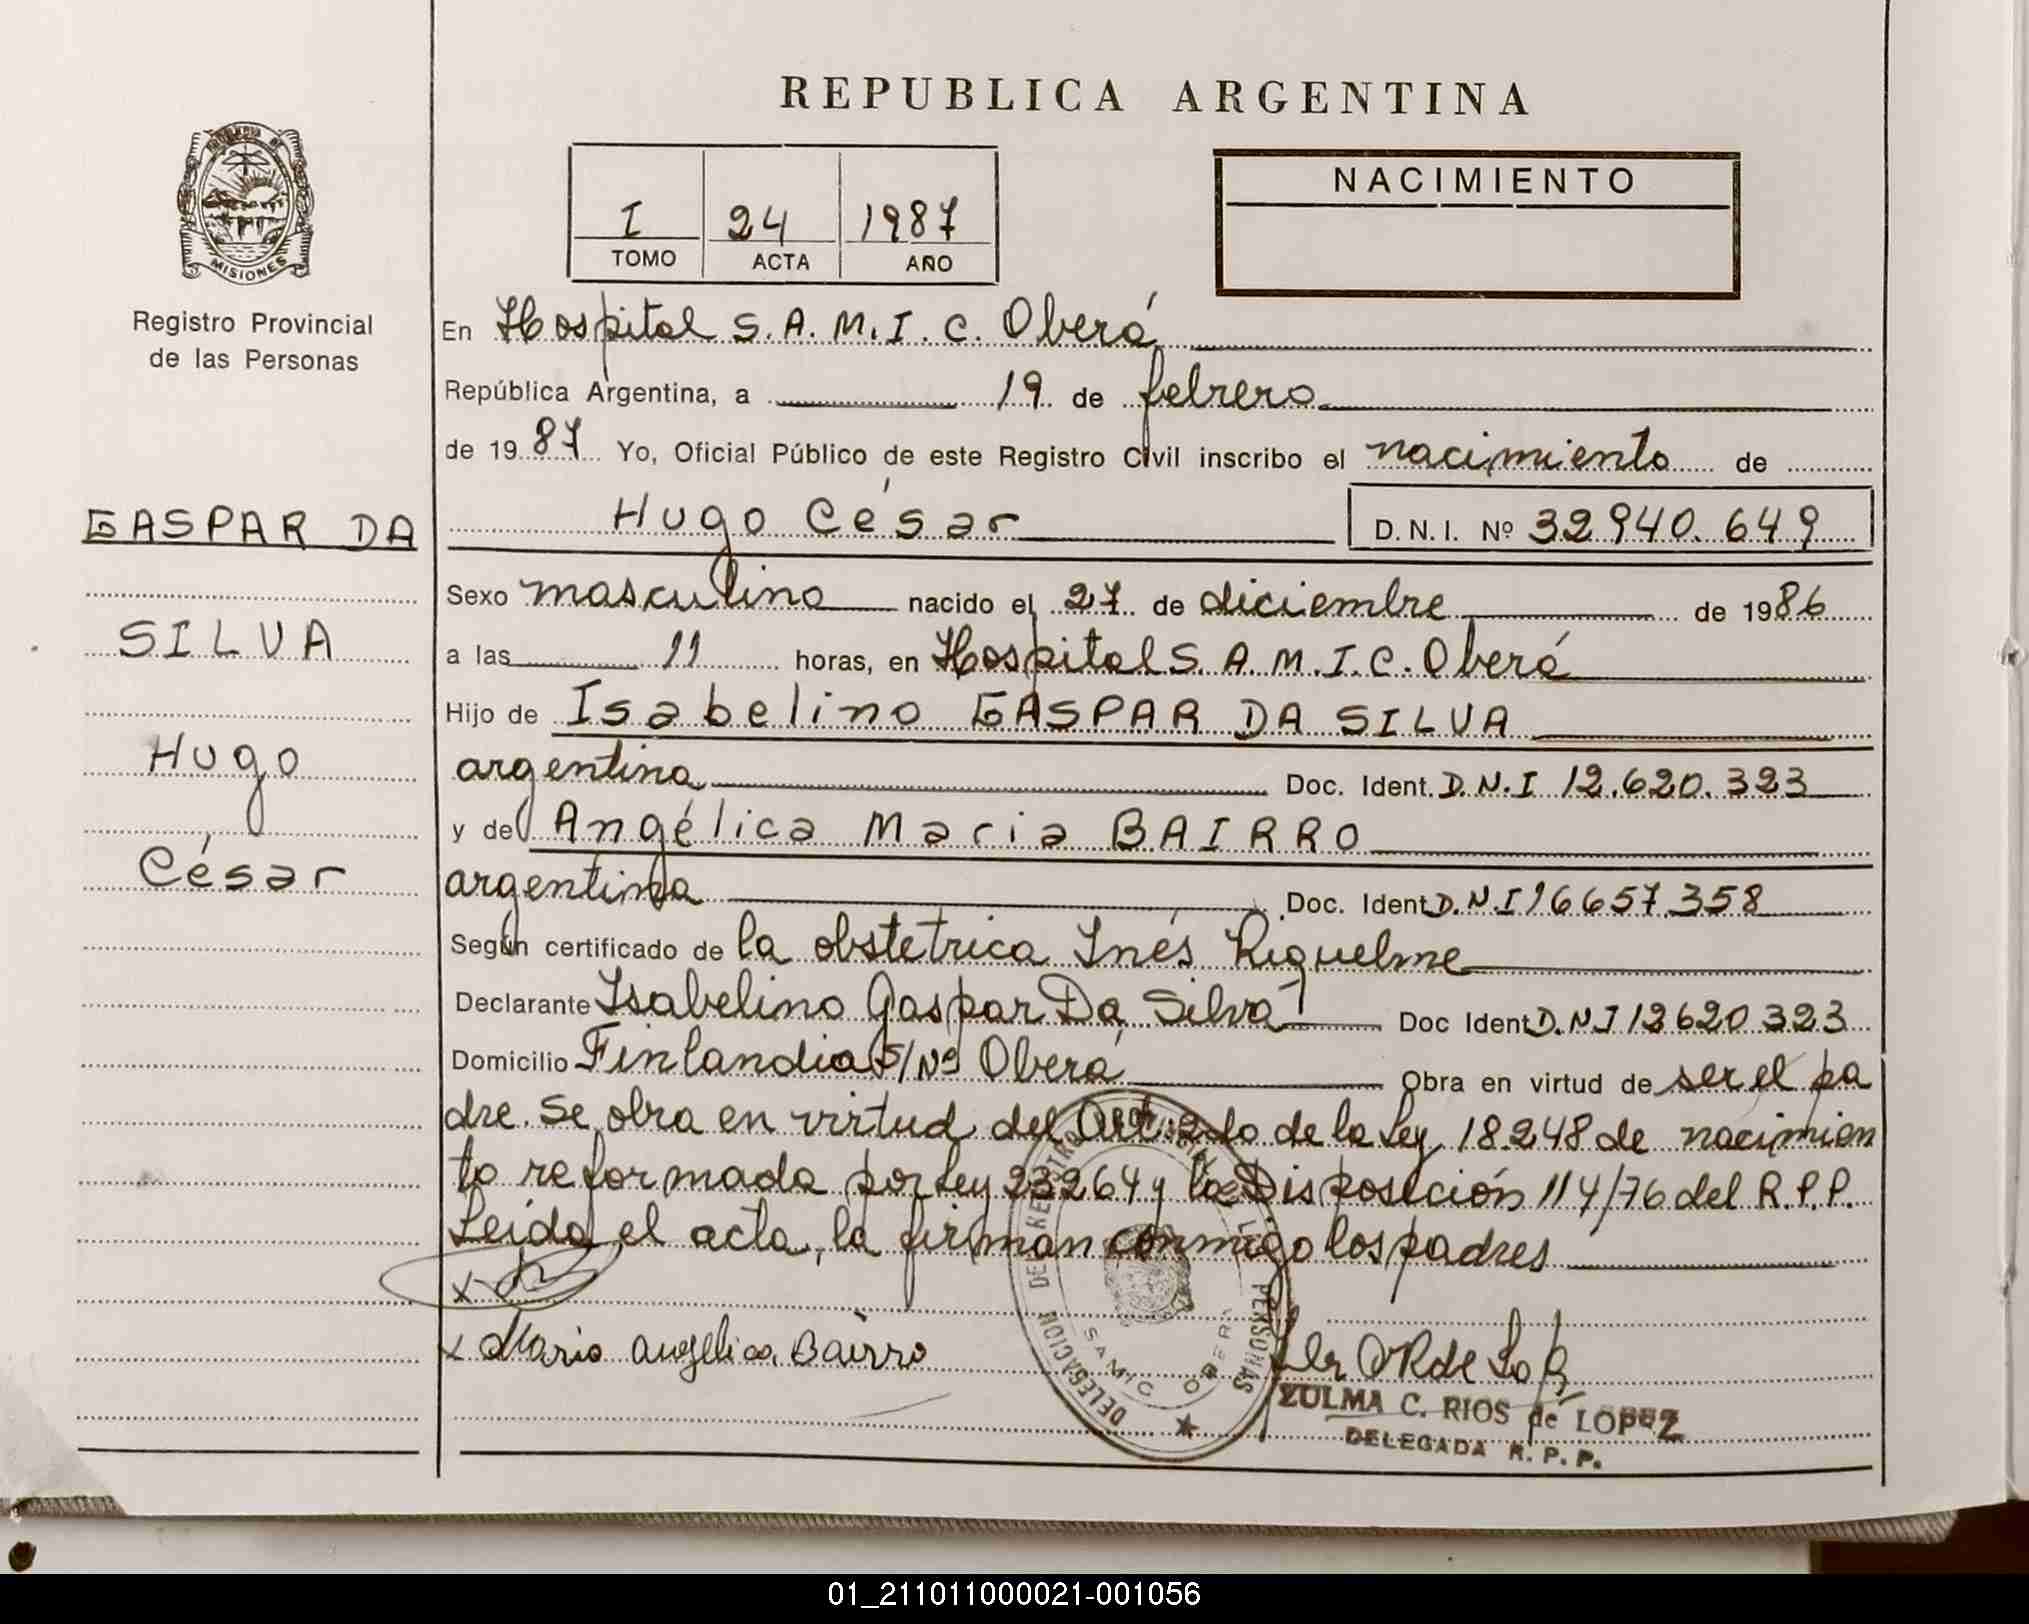 REPUBLICA ARGENTINA
MISIONES
Registro Provincial
de las Personas
I 24 1987
TOMO ACTA AÑO
NACIMIENTO
En Hospital S. A. M. I. C. Oberá
República Argentina, a 19 de febrero
de 1987 Yo, Oficial Público de este Registro Civil inscribo el nacimiento de
Hugo César D.N.I. Nº 32940.649
GASPAR DA
SILVA
Hugo
César
Sexo masculino nacido el 27 de diciembre de 1986
a las 11 horas, en Hospital S. A. M. I. C. Oberá
Hijo de Isabelino GASPAR DA SILVA
argentina Doc. Ident. D.N.I 12.620.323
y de Angélica Maria BAIRRO
argentina Doc. Ident D.N.I 16657.358
Según certificado de la obstetrica Inés Riquelme
Declarante Isabelino Gaspar Da Silva Doc Ident D.N.I 12620323
Domicilio Finlandia S/Nº Oberá Obra en virtud de ser el pa
dre. Se obra en virtud del Art. 2do de la Ley 18.248 de nacimien
to reformada por Ley 23264 y la Disposición 114/76 del R.P.P.
Leida el acta, la firman conmigo los padres
x
x Maria Angelica Bairro
DELEGACION DE REGISTRO PERSONAS
SAMIC OBERA
ZULMA C. RIOS de LOPEZ
DELEGADA R. P. P.
01_211011000021-001056